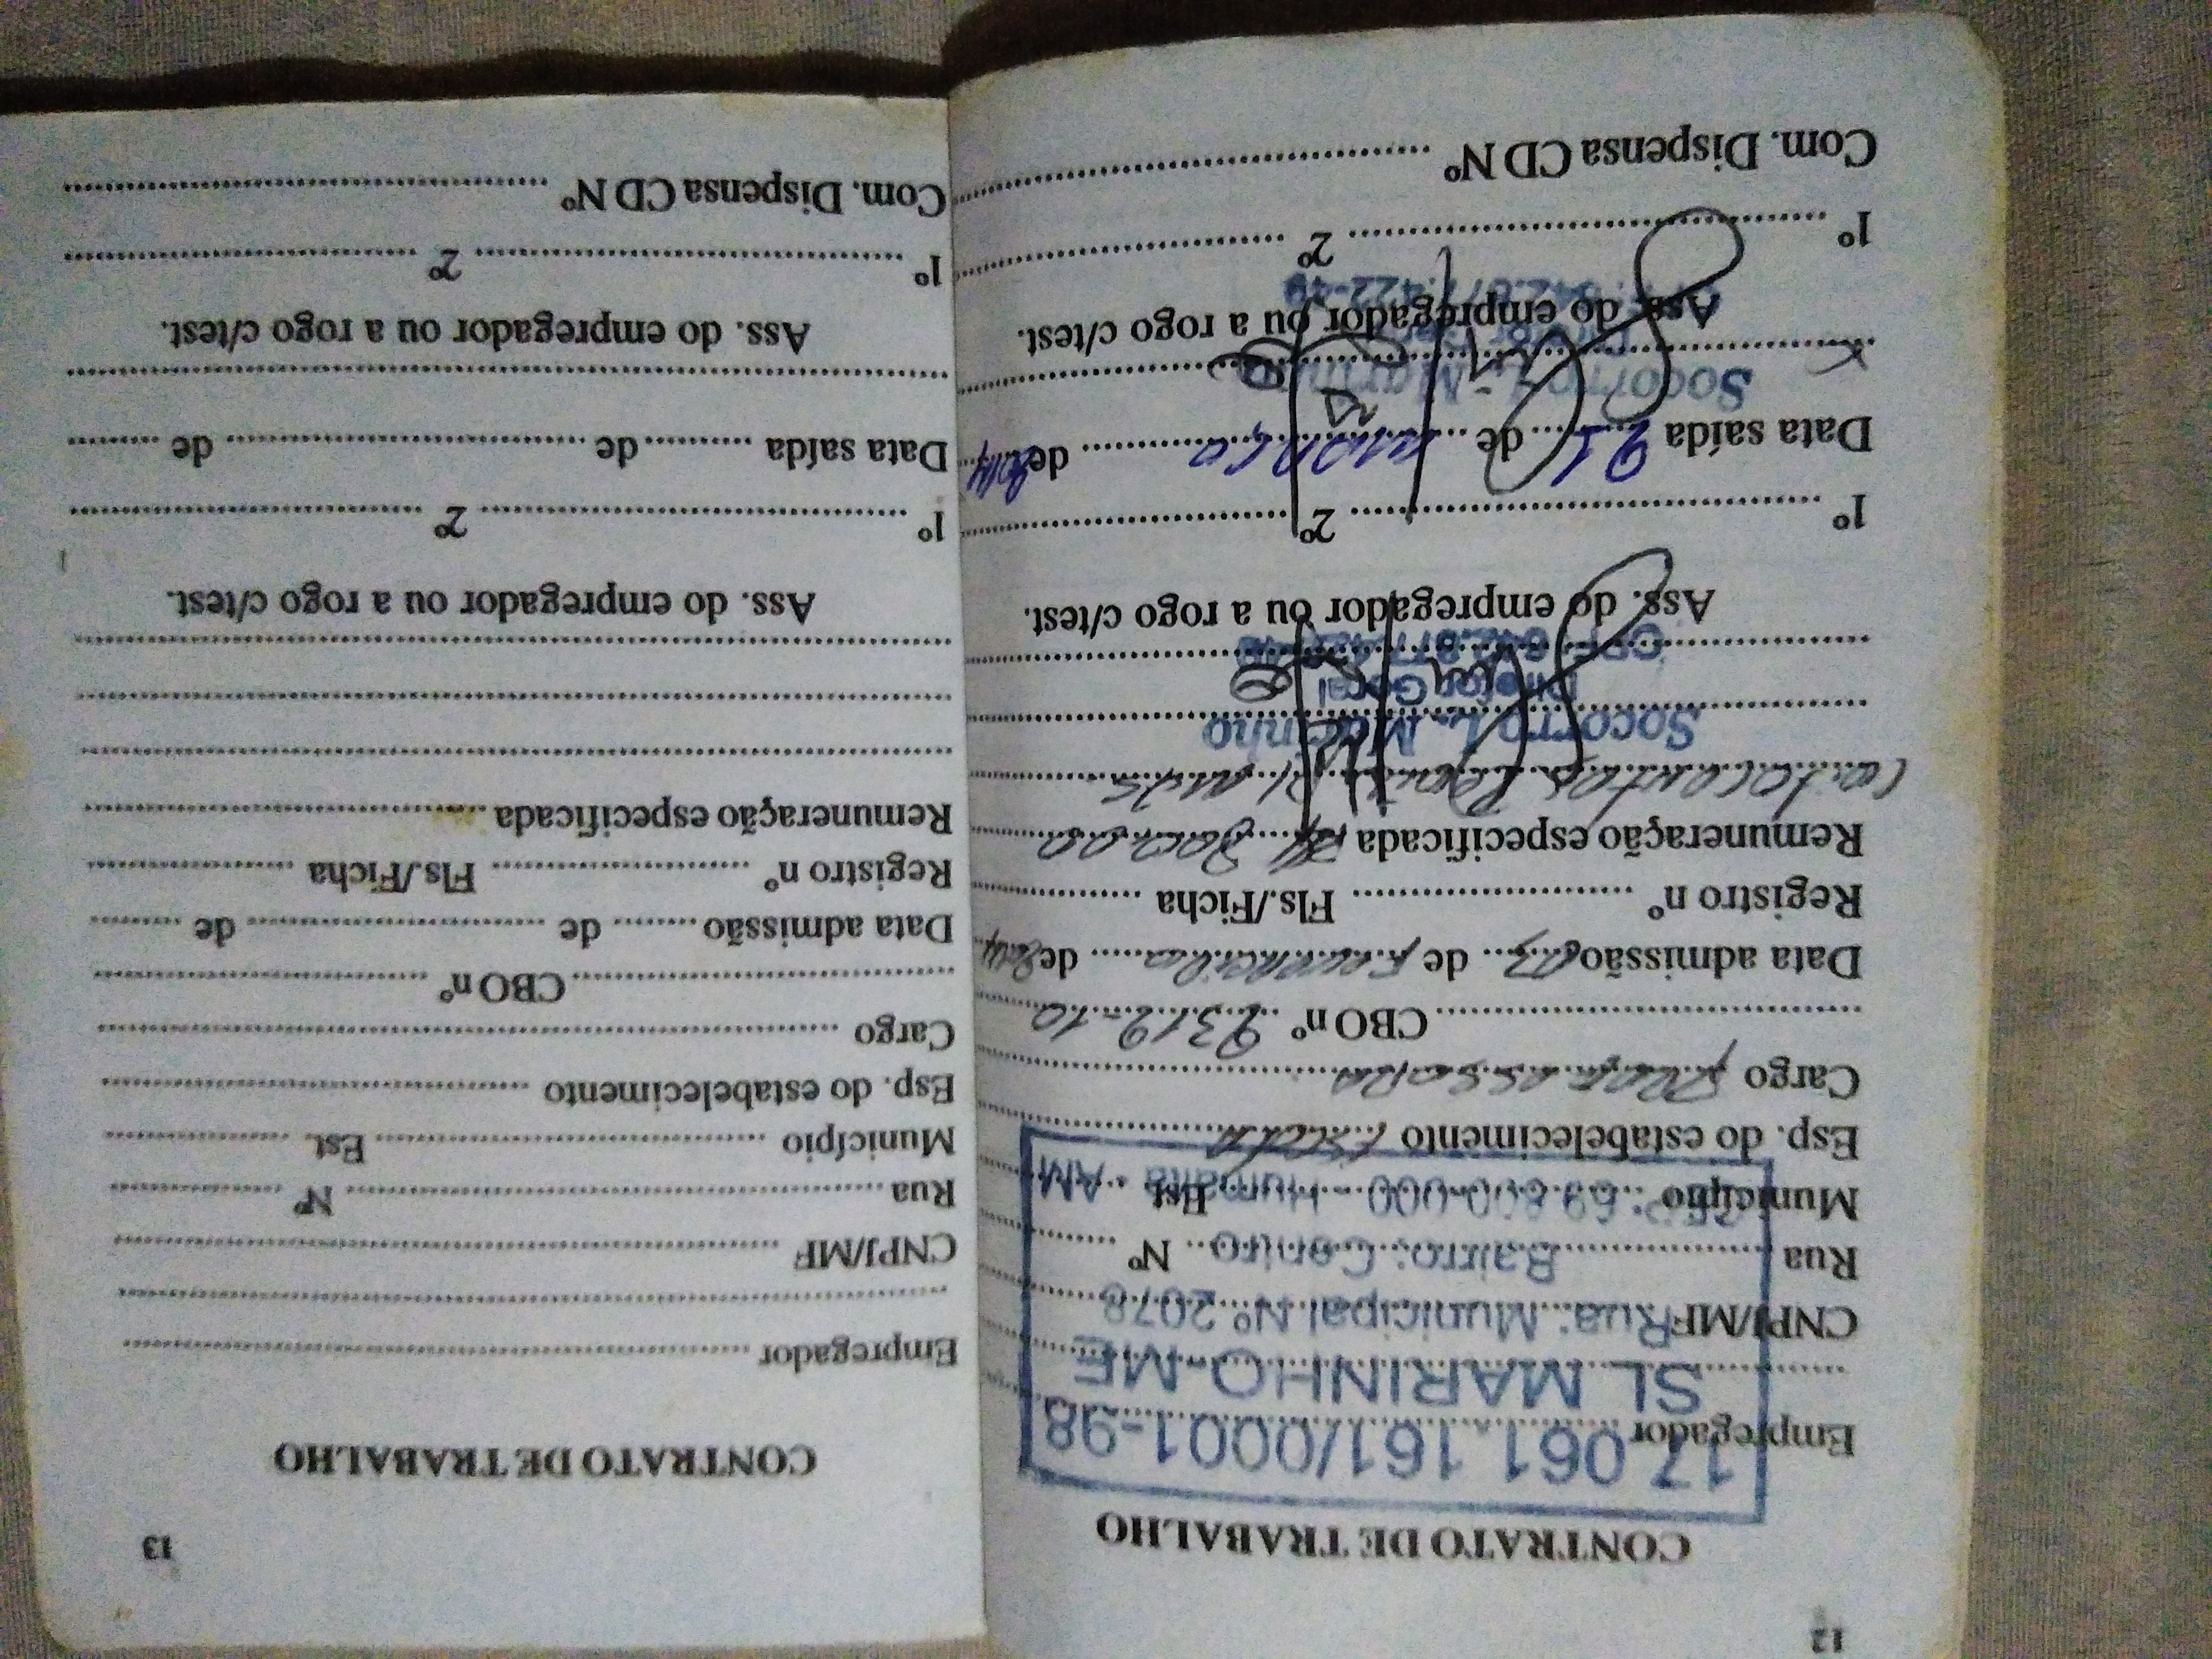 12
CONTRATO DE TRABALHO
17.061.161/0001-98
Empregador
SL MARINHO-ME
CNPJ/MF Rua: Municipal Nº 2078
Rua Bairro: Centro Nº
Município CEP: 69.800.000 - Humaitá - AM Est.
Esp. do estabelecimento Escola
Cargo Professora
CBO nº 2312-10
Data admissão 03 de Fevereiro de 2014
Registro nº Fls./Ficha
Remuneração especificada R$ 800,00
(oitocentos reais) p/ mês
Socorro L. Marinho
Diretor Geral
Ass. do empregador ou a rogo c/test.
1º 2º
Data saída 21 de março de 2014
Socorro L. Marinho
Ass. do empregador ou a rogo c/test.
1º 2º
Com. Dispensa CD Nº
13
CONTRATO DE TRABALHO
Empregador
CNPJ/MF
Rua Nº
Município Est.
Esp. do estabelecimento
Cargo
CBO nº
Data admissão de de
Registro nº Fls./Ficha
Remuneração especificada
Ass. do empregador ou a rogo c/test.
1º 2º
Data saída de de
Ass. do empregador ou a rogo c/test.
1º 2º
Com. Dispensa CD Nº